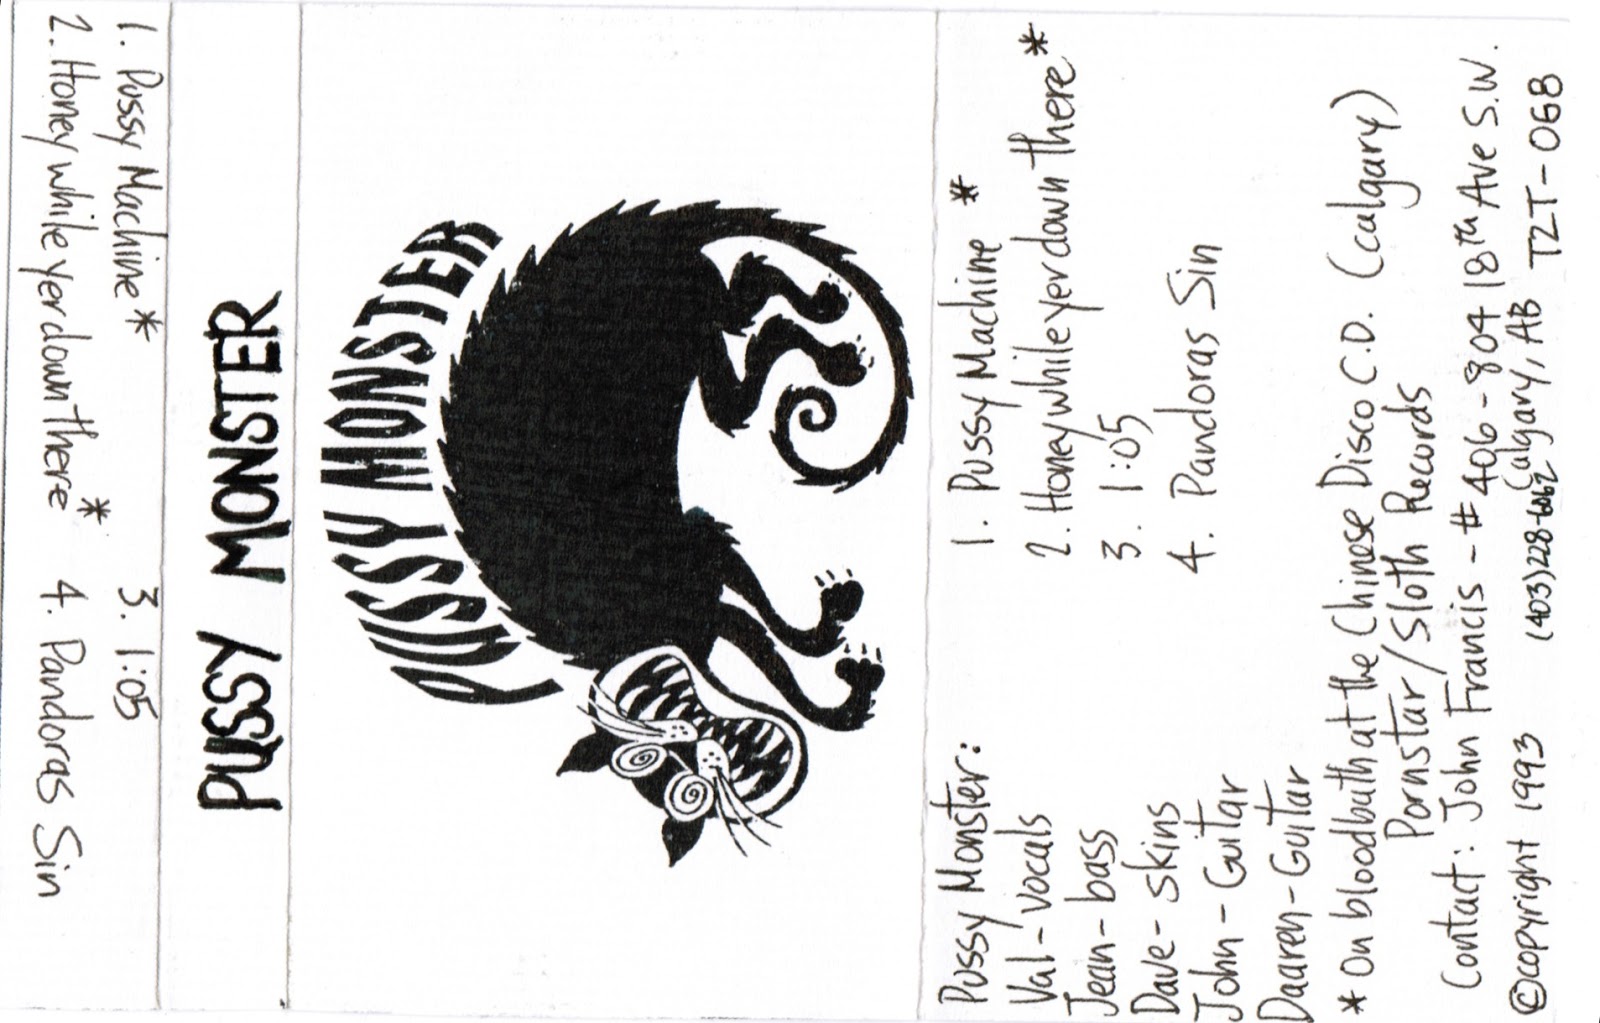 1. Pussy Machine* 3. 1:05
2. Honey while yer down there* 4. Pandoras Sin
PUSSY MONSTER
PUSSY MONSTER
Pussy Monster:
Val - vocals
Jean - bass
Dave - skins
John - Guitar
Daaren - Guitar
1. Pussy Machine *
2. Honey while yer down there*
3. 1:05
4. Pandoras Sin
* On bloodbath at the Chinese Disco C.D. (calgary)
Pornstar / Sloth Records
Contact: John Francis - #406 - 804 18th Ave S.W.
Calgary, AB T2T - 0G8
(403) 228-6062
©copyright 1993